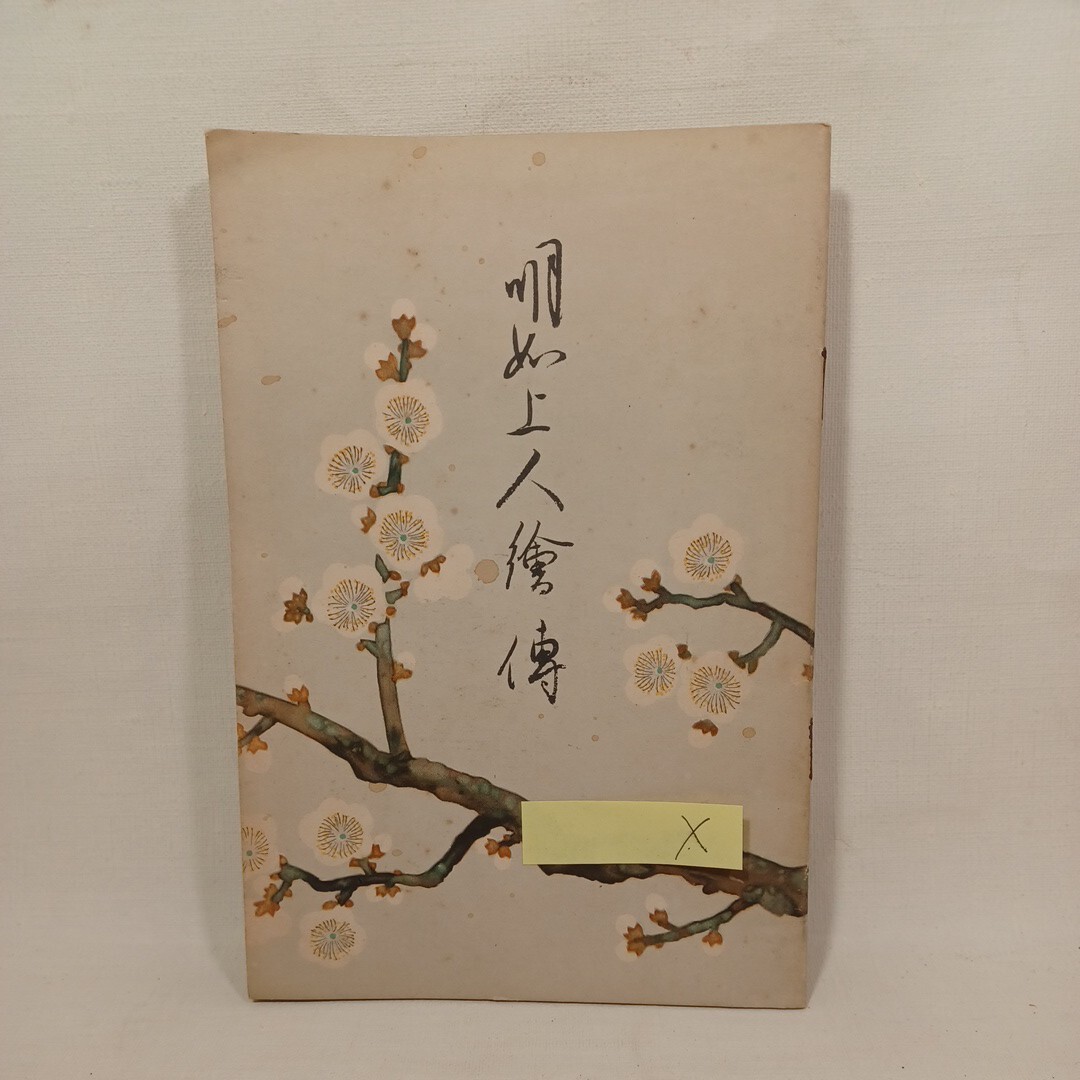 明如上人繪傳
X